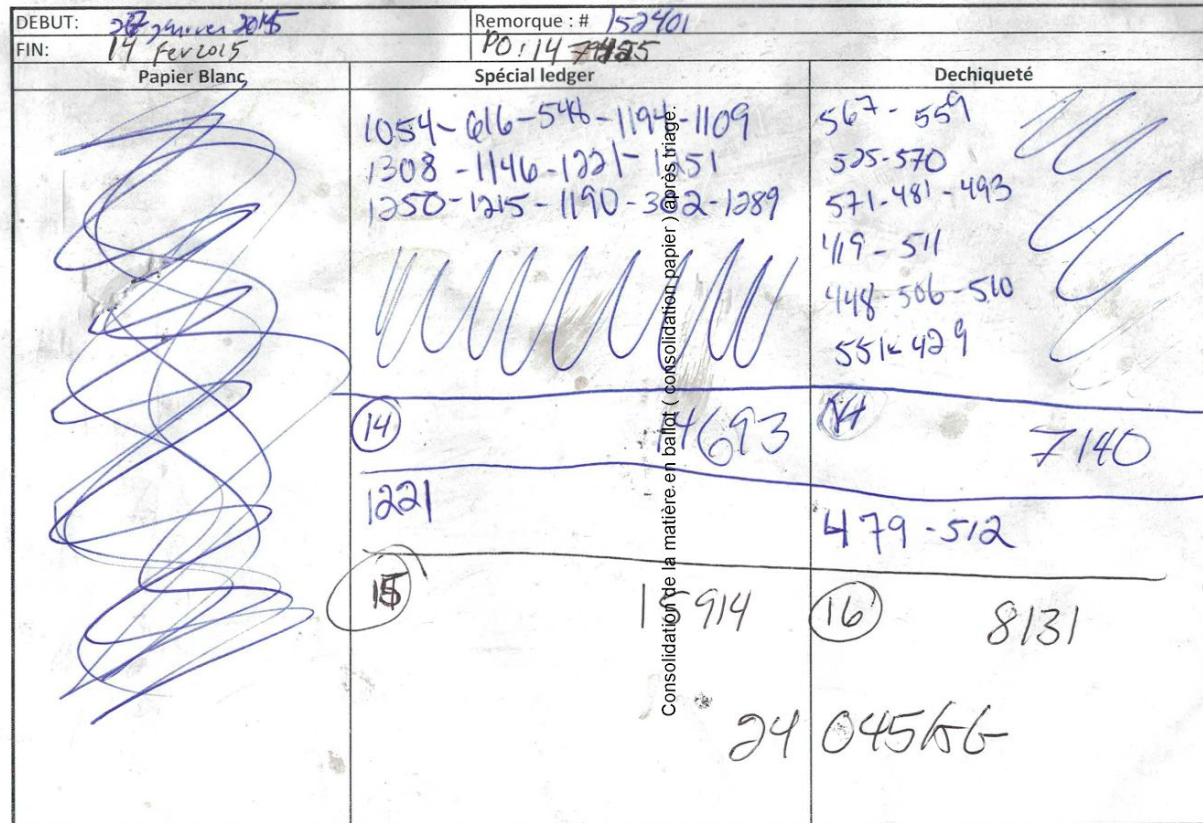 DEBUT: 27 janvier 2015
Remorque : # 152401
FIN: 14 Fev 2015
PO: 14
Papier Blanc
Spécial ledger
Dechiqueté
1054 - 616 - 546 - 1194 - 1109
1308 - 1146 - 1221 - 1251
1250 - 1215 - 1190 - 302 - 1289
567 - 559
525 - 570
571 - 481 - 493
419 - 511
448 - 506 - 510
551 - 429
14
14693
14
7140
1221
479 - 512
15
15914
16
8131
24 045 KG
Consolidation de la matière en ballot ( consolidation papier ) après triage :